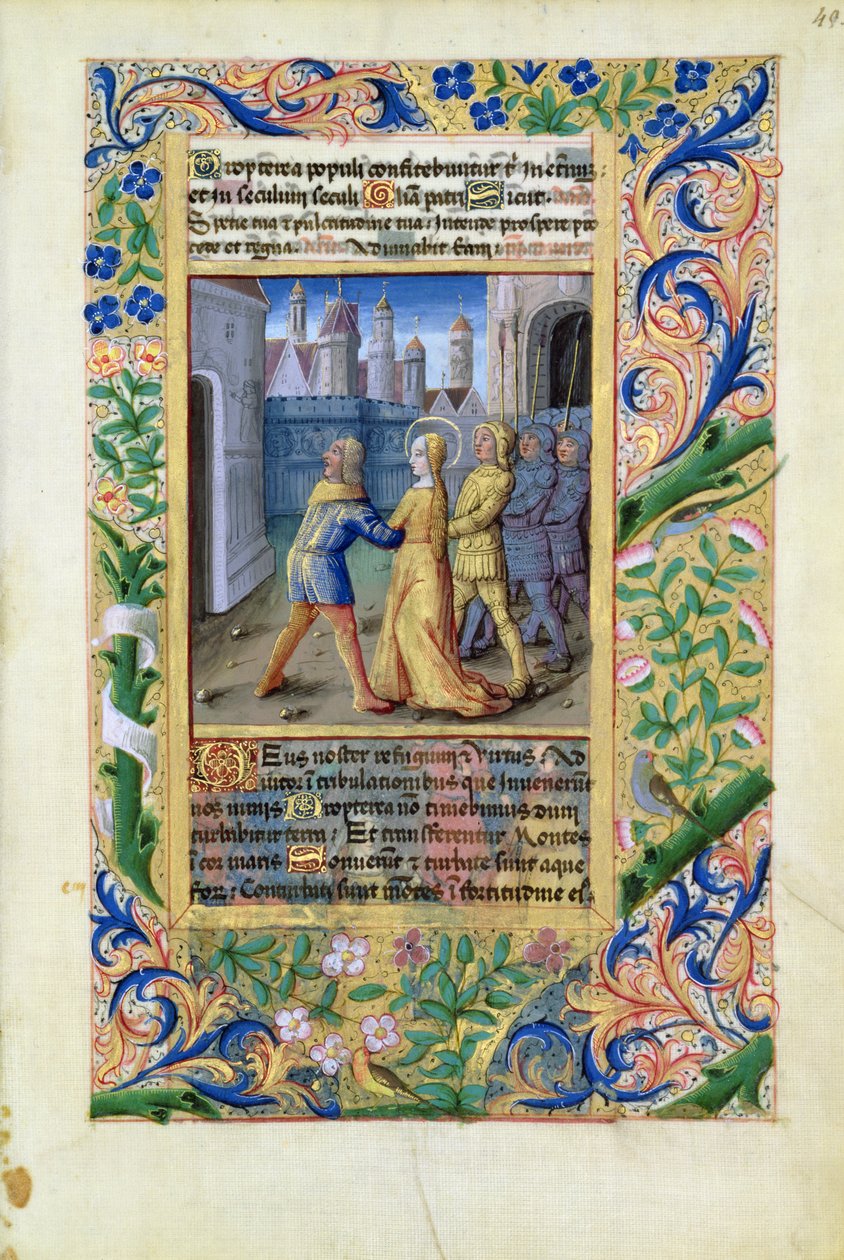 49.
Propterea populi confitebuntur t͛ In et̄nū:
et In seculum seculi Gl̄ia patri Sicut.
Specie tua ⁊ pulcritudine tua: Intende prospere pro
cede et regna. Adiuuabit eam:
Deus noster refugium ⁊ virtus: Ad
iutor ī tribulationibus que Inuenerūt
nos nimis Propterea nō timebimus dum
turbabitur terra: Et transferentur Montes
ī cor maris Sonuerūt ⁊ turbate sunt aque
eorꝝ: Conturbati sunt mōtes ī fortitudine eiꝰ